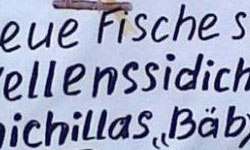 eue Fische s
ellenssidich
ichillas„Bäb